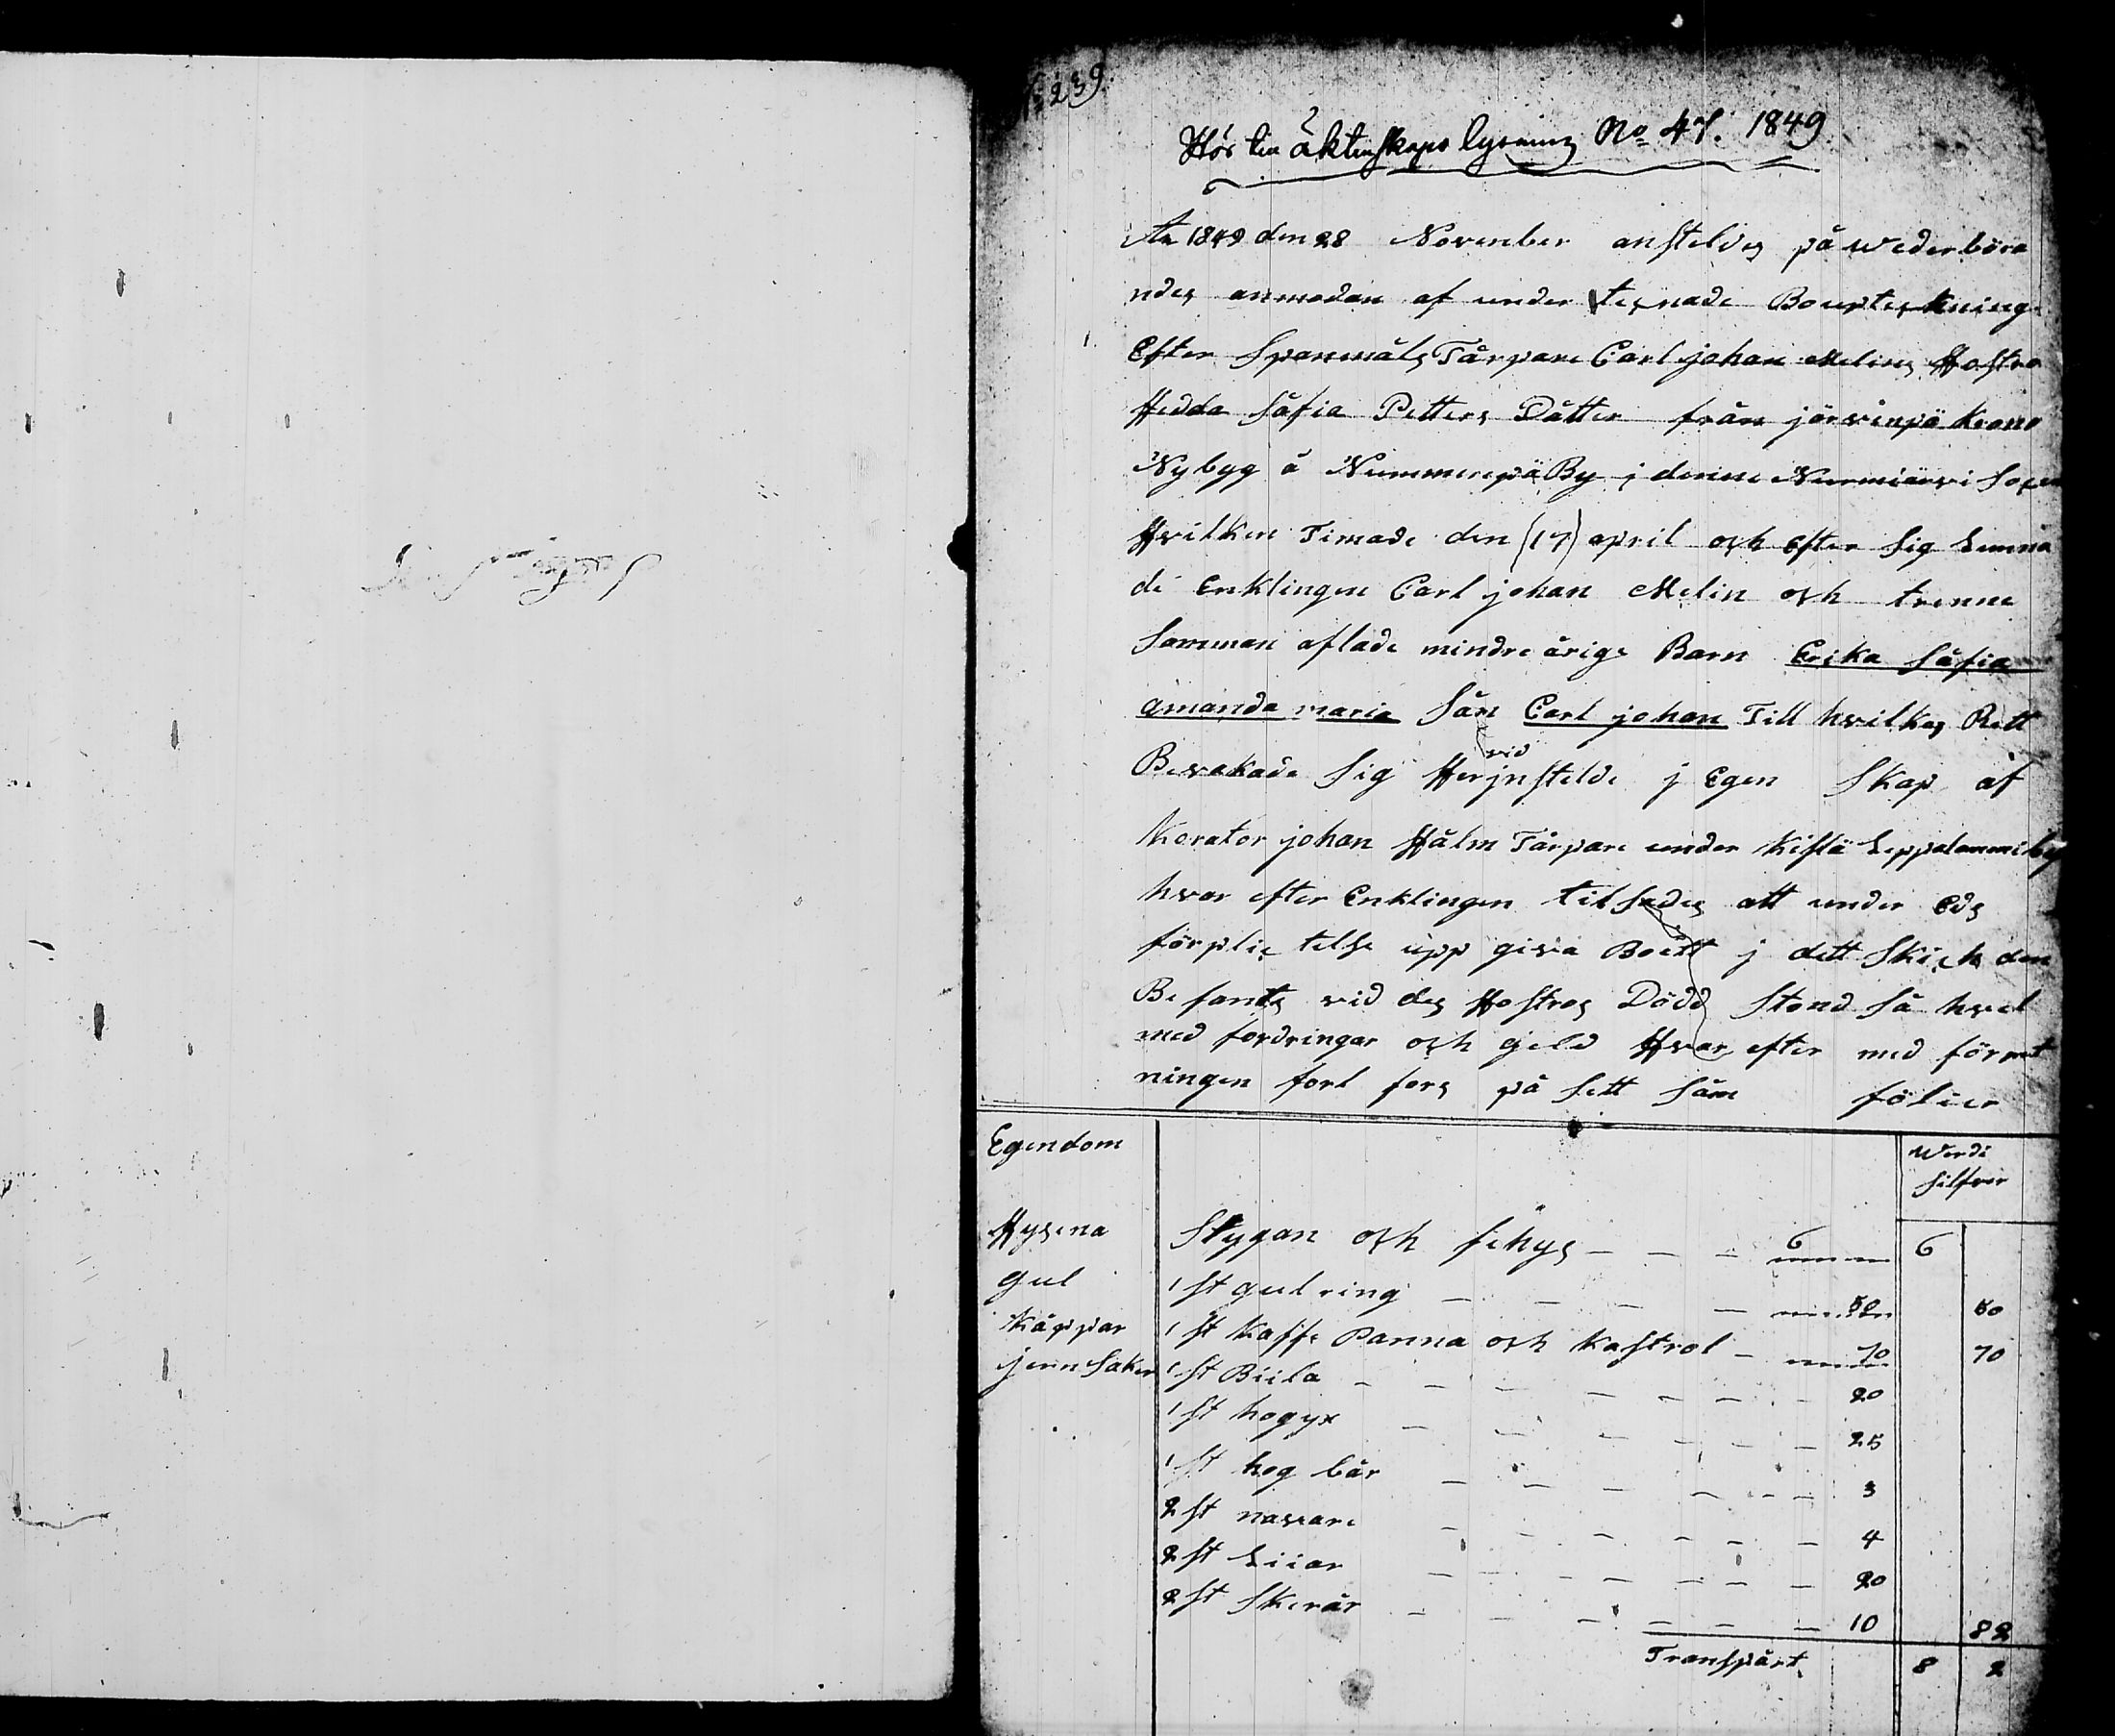 239.
Hör till äktenskaps lysning No 47. 1849
År 1849 den 28 November ansteldes på wederböra
ndes anmodan af under tegnade Boupteckning
Efter Spanmåls Tårpare Carl johan Melins Hostro
Hedda Såfia Petters Dåtter från järvinpä krono
Nybyg å Nummenpä By j denne Nurmiärvi Socen
Hvilken Timade den (17) april och efter sig Lemna
de Enklingen Carl johan Melin och trenne
Samman aflade mindre årige Barn Erika Såfia
amanda maria Sån Carl johan Till hvilkas Rett
vid
Bevakade sig Her jnstelde j Egen Skap af
Korator johan Hålm Tårpare under Kiflä Leppelammi by
hvar efter Enklingen tilsades att under Eds
förplic telse upp giva Boett j dett Skick den
Befants vid des Hostros Dödd Stond så hvel
med fordringar och gield Hvar efter med förret
ningen fort fors på Sett Såm fölier
Egendom
Werde
Silfver
Hysena Stygan och fehys 6 6
gul 1 st gul ring 50 50
Kåppar 1 st Kaffe Panna och Kastrol 70 70
jern Saker 1 st Biila 20
1 st hogyx 25
1 st hog bår 3
2 st navare 4
2 st Liiar 20
2 st Skerår 10 82
Transpårt 8 2